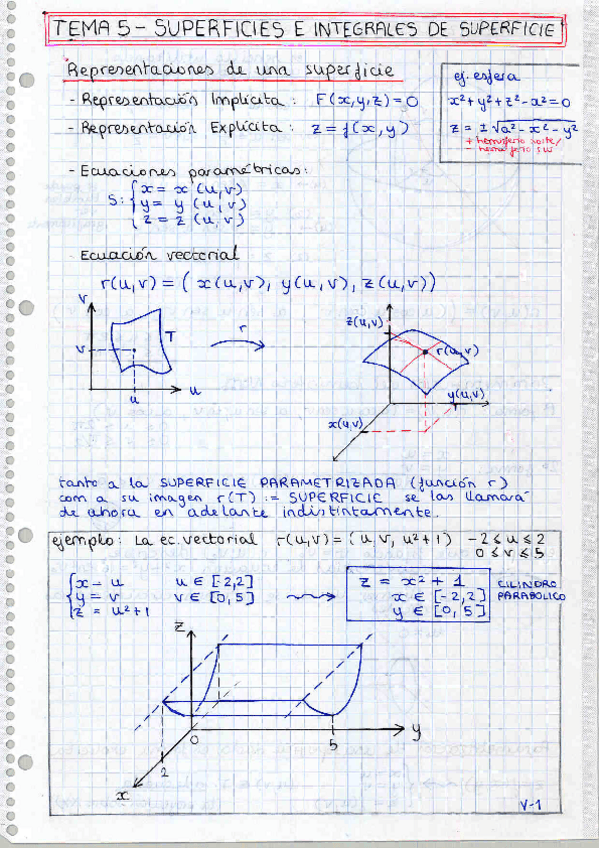 TEMA 5 - SUPERFICIES E INTEGRALES DE SUPERFICIE
Representaciones de una superficie
- Representación Implícita : F(x,y,z)=0
- Representación Explícita : z=f(x,y)
ej. esfera
x²+y²+z²-a²=0
z = ±√a²-x²-y²
+ hemisferio norte/
- Ecuaciones paramétricas:
S: { x = x (u,v)
y = y (u,v)
z = z (u,v)
Ecuación vectorial
r(u,v) = ( x(u,v), y(u,v), z(u,v))
v
T
v
u
u
r
z(u,v)
r(u,v)
y(u,v)
x(u,v)
tanto a la SUPERFICIE PARAMETRIZADA (función r)
com a su imagen r(T) := SUPERFICIE se las llamará
de ahora en adelante indistintamente.
ejemplo: La ec. vectorial r(u,v) = (u, v, u²+1) -2≤u≤2
0≤v≤5
{ x = u u ∈ [-2,2]
y = v v ∈ [0,5]
z = u²+1
z = x² + 1
x ∈ [-2,2]
y ∈ [0,5]
CILINDRO
PARABOLICO
z
0
5
y
2
x
V-1